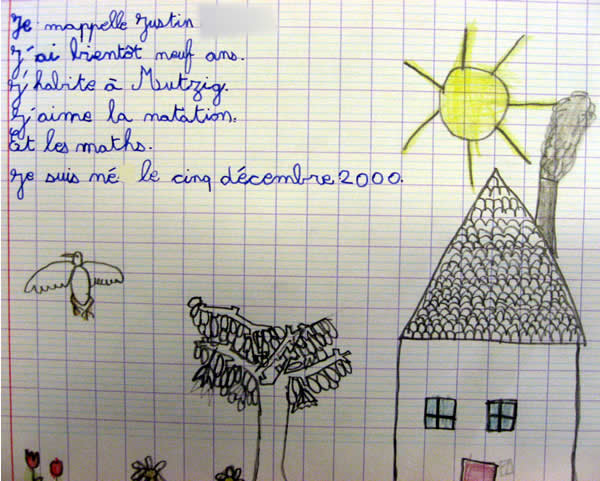 Je mappelle Justin
J'ai bientôt neuf ans.
J'habite à Mutzig.
J'aime la natation.
Et les maths.
Je suis né le cinq décembre 2000.